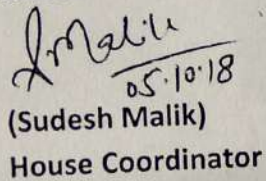 SMalik
05.10.18
(Sudesh Malik)
House Coordinator